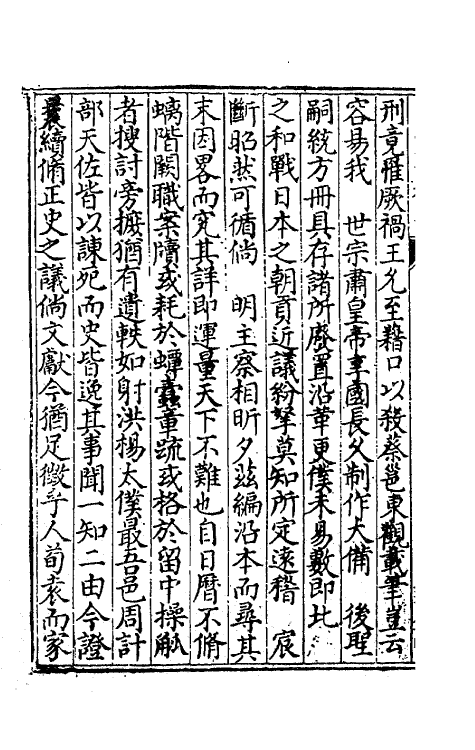 刑竟罹厥禍王允至藉口以殺蔡邕東觀載筆豈云
容易我　世宗肅皇帝享國長久制作大備　後聖
嗣統方冊具存諸所廢置沿革更僕未易數即此
之和戰日本之朝貢近議紛拏莫知所定遠稽　宸
斷昭然可循倘　明主察相昕夕茲編沿本而尋其
末因畧而究其詳即運量天下不難也自日曆不脩
螭階闕職案牘或耗於蟫蠹章疏或格於留中操觚
者搜討旁摭猶有遺軼如射洪楊太僕最吾邑周計
部天佐皆以諫死而史皆逸其事聞一知二由今證
曩續脩正史之議倘文獻今猶足徵乎人荀袁而家